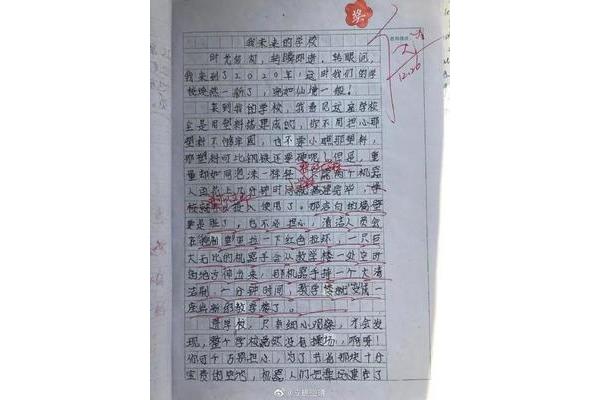 我未来的学校
时光匆匆，转瞬即逝，转眼间，
我来到了2020年！这时我们的学
校焕然一新了，宛如仙境一般！
来到我的学校，我看见这座学校
全是用塑料搭建成的，你不用担心那
塑料不够牢固，也不要小瞧那塑料，
那塑料可比钢铁还要硬呢！但是，重
量却如同泡沫一样轻，只需两个机器
人
上几分钟时间就搭建完毕，学
校就
投入使用了。那洁白的墙壁
要是脏了，也不必担心，清洁人员会
在控制室里拉一下红色拉环，一只巨
大无比的机器手会从教学楼一处空旷
的地方伸出来，那机器手持一个大清
洁刷，一分钟时间，教学楼就变成一
座崭新的教学楼了。
进学校，只有细心观察，才会发
现，整个学校居然没有操场，啊呀！
你可千万别担心，为了节省那块十分
宝贵的空地，机器人们把操场建在了
12.26